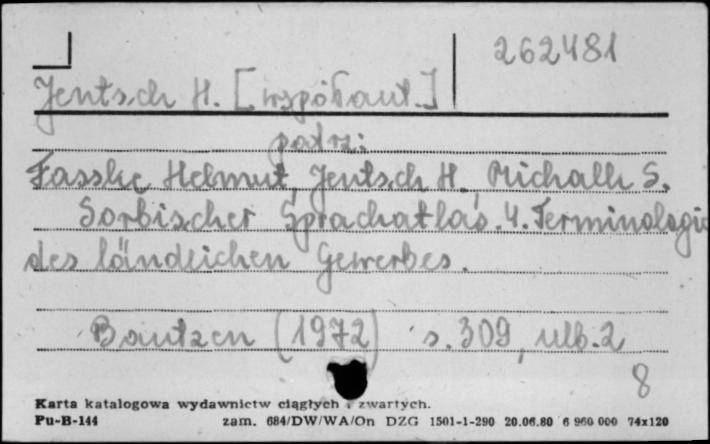 262481
Jentsch H. [współaut.]
patrz:
Fasske Helmut, Jentsch H., Michalk S.
Sorbischer Sprachatlas. 4. Terminologie
des ländlichen Gewerbes.
Bautzen (1972) s. 309, ulb. 2
8
Karta katalogowa wydawnictw ciągłych i zwartych.
Pu-B-144 zam. 684/DW/WA/On DZG 1501-1-290 20.06.80 6 960 000 74x120